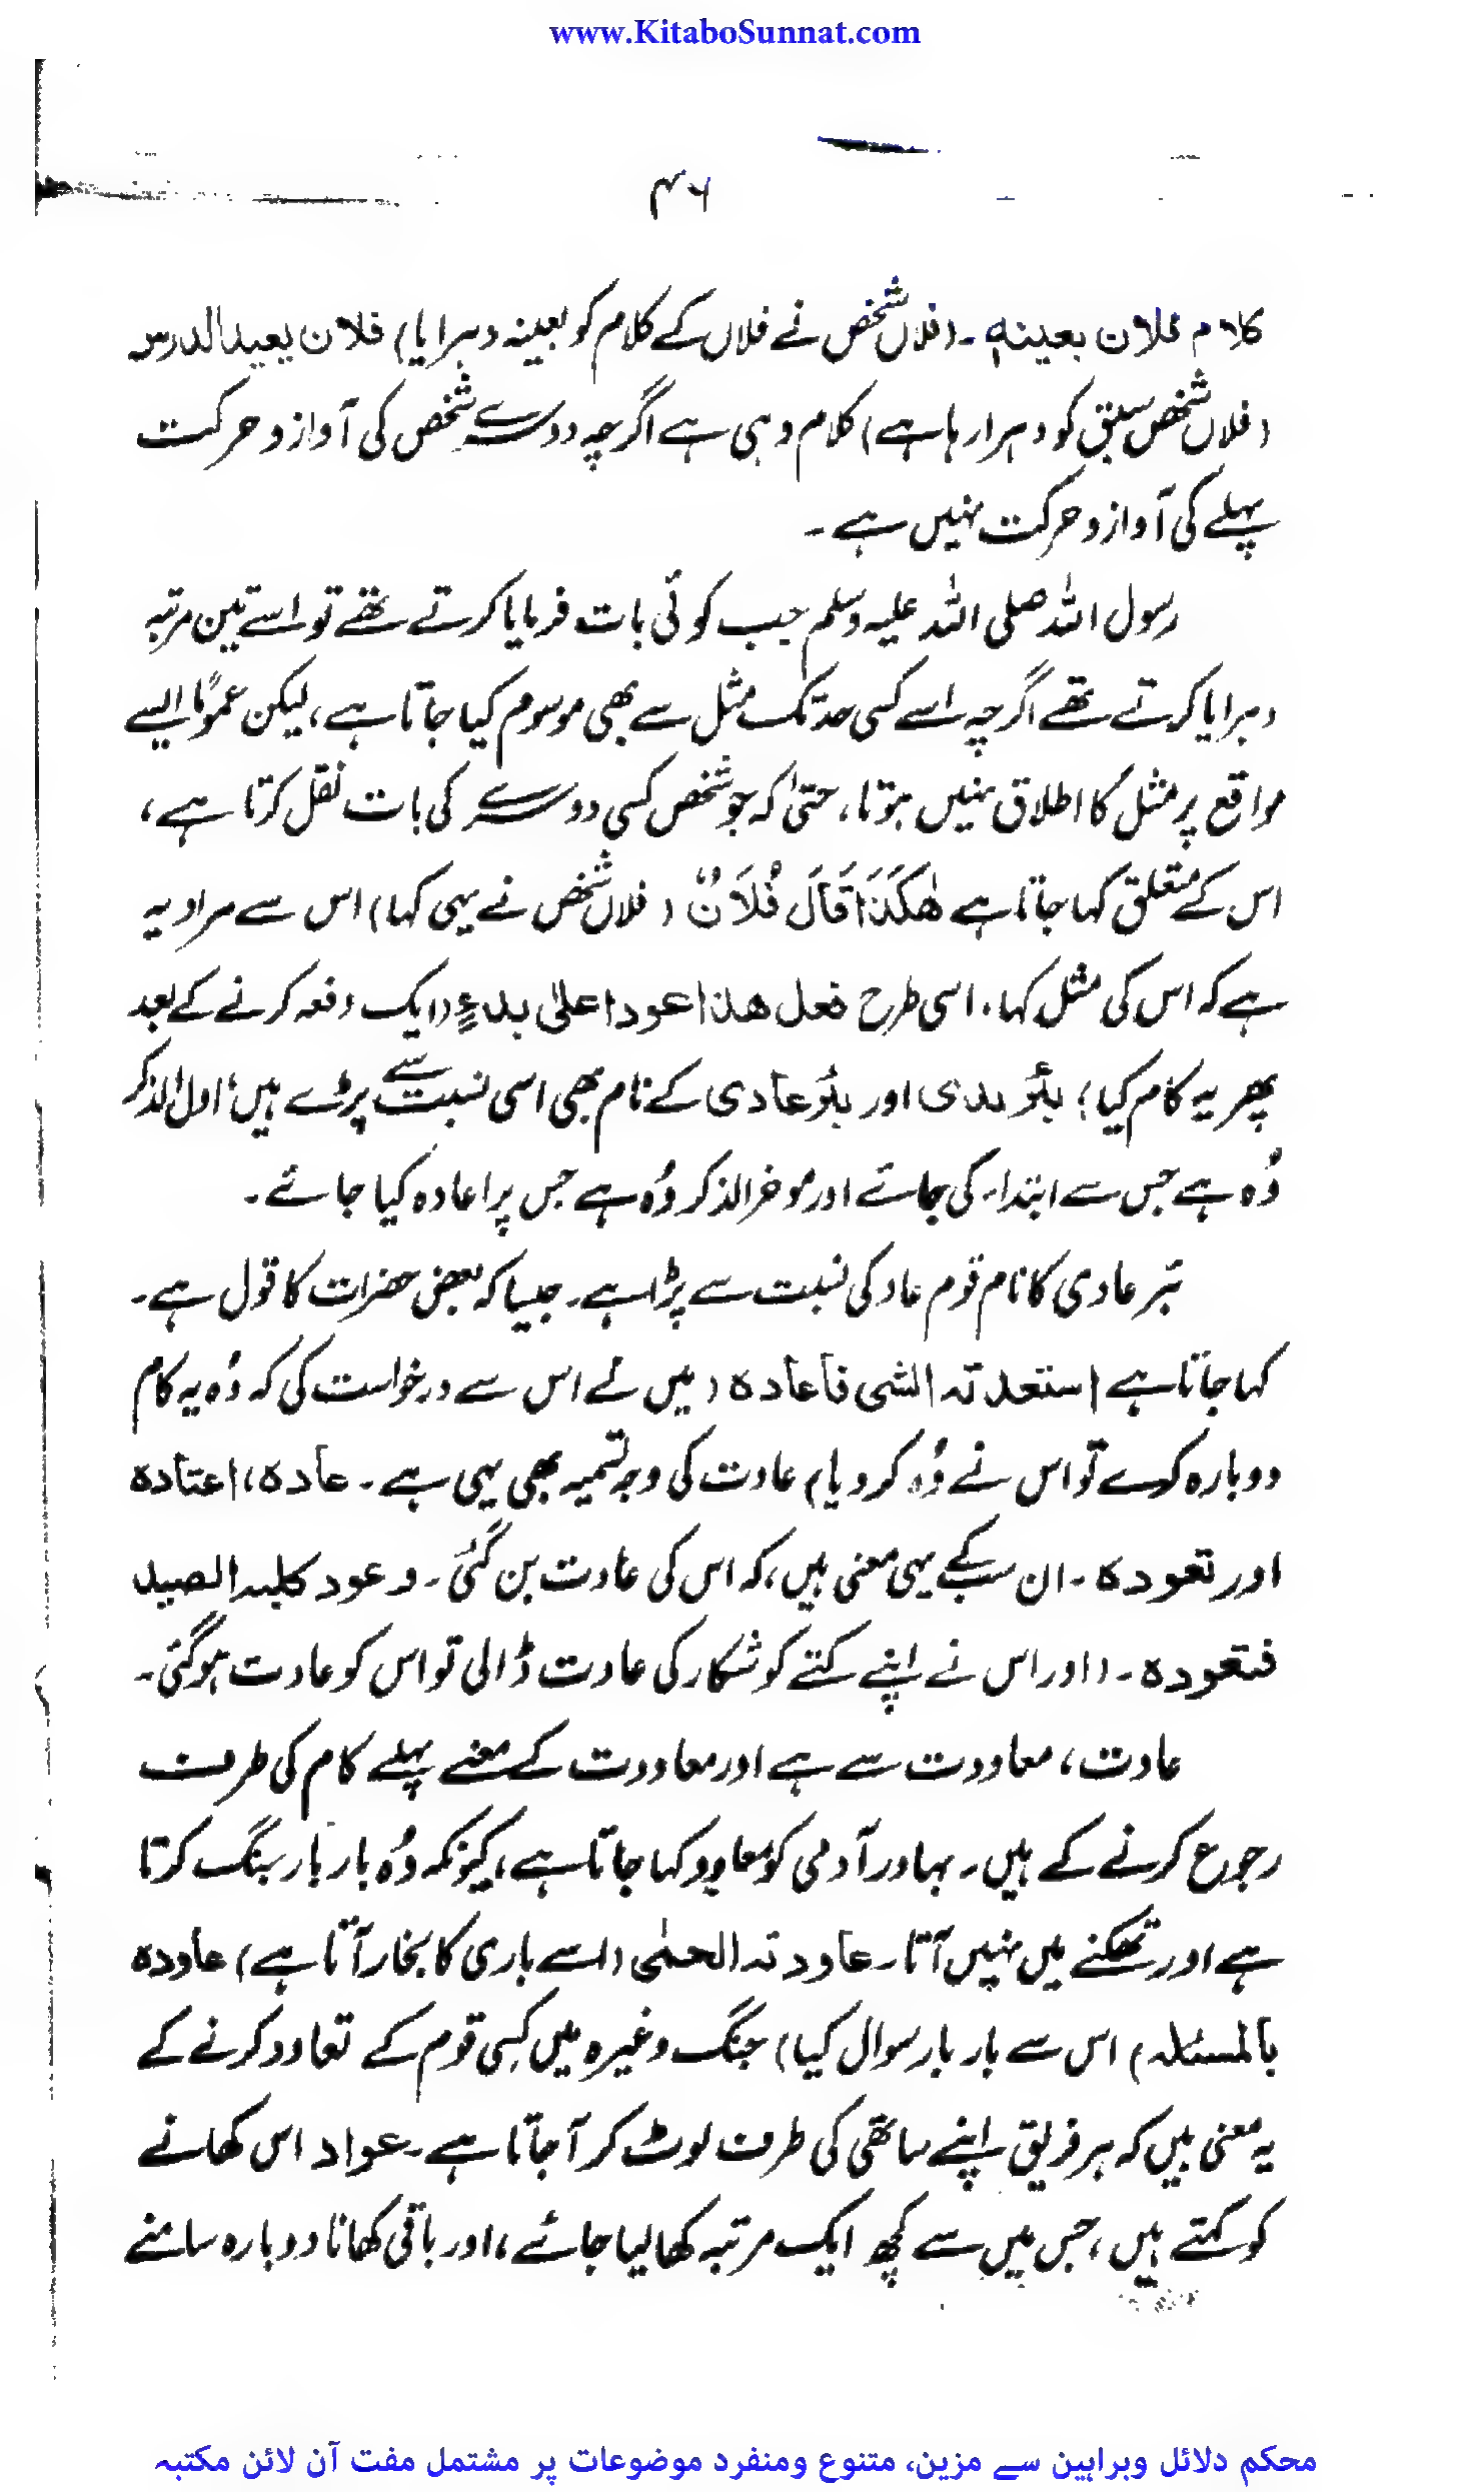 www.KitaboSunnat.com
۴۶
کلام فلان بعینہٖ ۔ (فلاں شخص نے فلاں کے کلام کو بعینہ دہرایا) فلان یعید الدرس
(فلاں شخص سبق کو دہرا رہا ہے) کلام وہی ہے اگرچہ دوسرے شخص کی آواز و حرکت
پہلے کی آواز و حرکت نہیں ہے ۔
رسول اللہ صلی اللہ علیہ وسلم جب کوئی بات فرمایا کرتے تھے تو اسے تین مرتبہ
دہرایا کرتے تھے اگرچہ اسے کسی حد تک مثل سے بھی موسوم کیا جاتا ہے، لیکن عموماً ایسے
مواقع پر مثل کا اطلاق نہیں ہوتا، حتیٰ کہ جو شخص کسی دوسرے کی بات نقل کرتا ہے،
اس کے متعلق کہا جاتا ہے ھٰکَذَا قَالَ فُلَانٌ (فلاں شخص نے یہی کہا) اس سے مراد یہ
ہے کہ اس کی مثل کہا۔ اسی طرح فعل ھذا عودا علیٰ بدءٍ (ایک دفعہ کرنے کے بعد
پھر یہ کام کیا) بئر بدی اور بئر عادی کے نام بھی اسی نسبت سے پڑے ہیں، اول الذکر
وُہ ہے جس سے ابتداء کی جائے اور موخر الذکر وُہ ہے جس پر اعادہ کیا جائے ۔
بئر عادی کا نام قوم عاد کی نسبت سے پڑا ہے۔ جیسا کہ بعض حضرات کا قول ہے۔
کہا جاتا ہے استعدتہ الشی فاعادہ (میں نے اس سے درخواست کی کہ وُہ یہ کام
دوبارہ کرے تو اس نے وُہ کر دیا) عادت کی وجہ تسمیہ بھی یہی ہے۔ عادہ، اعتادہ
اور تعودہ ۔ ان سب کے یہی معنی ہیں، کہ اس کی عادت بن گئی ۔ وعود کلبہ الصید
فتعودہ ۔ (اور اس نے اپنے کتے کو شکار کی عادت ڈالی تو اس کو عادت ہوگئی۔
عادت، معاودت سے ہے اور معاودت کے معنے پہلے کام کی طرف
رجوع کرنے کے ہیں۔ بہادر آدمی کو معاود کہا جاتا ہے، کیونکہ وُہ بار بار جنگ کرتا
ہے اور تھکنے میں نہیں آتا۔ عاودتہ الحمیٰ (اسے باری کا بخار آتا ہے) عاودہ
بالمسئلہ) اس سے بار بار سوال کیا) جنگ وغیرہ میں کسی قوم کے تعاود کرنے کے
یہ معنی ہیں کہ ہر فریق اپنے ساتھی کی طرف لوٹ کر آ جاتا ہے۔ عواد اس کھانے
کو کہتے ہیں، جس میں سے کچھ ایک مرتبہ کھا لیا جائے، اور باقی کھانا دوبارہ سامنے
محکم دلائل وبراہین سے مزین، متنوع ومنفرد موضوعات پر مشتمل مفت آن لائن مکتبہ